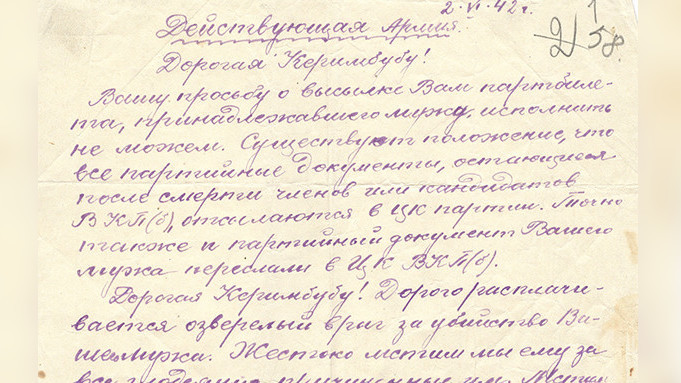 2-VI-42г.
Действующая Армия.
1
2 58.
Дорогая Керимбубу!
Вашу просьбу о высылке Вам партбиле-
та, принадлежавшего мужу, исполнить
не можем. Существует положение, что
все партийные документы, остающиеся
после смерти членов или кандидатов
ВКП(б), отсылаются в ЦК партии. Точно
также и партийный документ Вашего
мужа переслали в ЦК ВКП(б).
Дорогая Керимбубу! Дорого расплачи-
вается озверелый враг за убийство Ва-
шего мужа. Жестоко мстим мы ему за
все злодеяния, причиненные им.